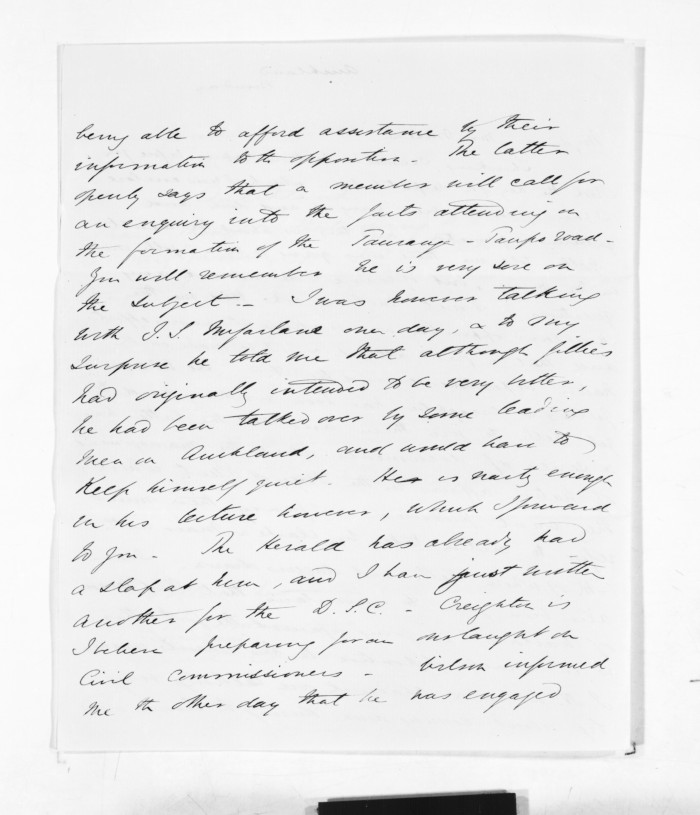 being able to afford assistance by their
information to the opposition. The latter
openly says that a member will call for
an enquiry into the facts attending on
the formation of the Taurang - Taupo road -
You will remember he is very sore on
the subject. - I was however talking
with J. S. Mcfarlane one day, & to my
surprise he told me that although Gillies
had originally intended to be very bitter,
he had been talked over by some leading
men in Auckland, and would have to
keep himself quiet. He is nasty enough
in his lecture however, which I forward
to you - The Herald has already had
a slap at him, and I have just written
another for the D. S. C. - Creighton is
I believe preparing for an onslaught on
Civil Commissioners - informed
me the other day that he was engaged